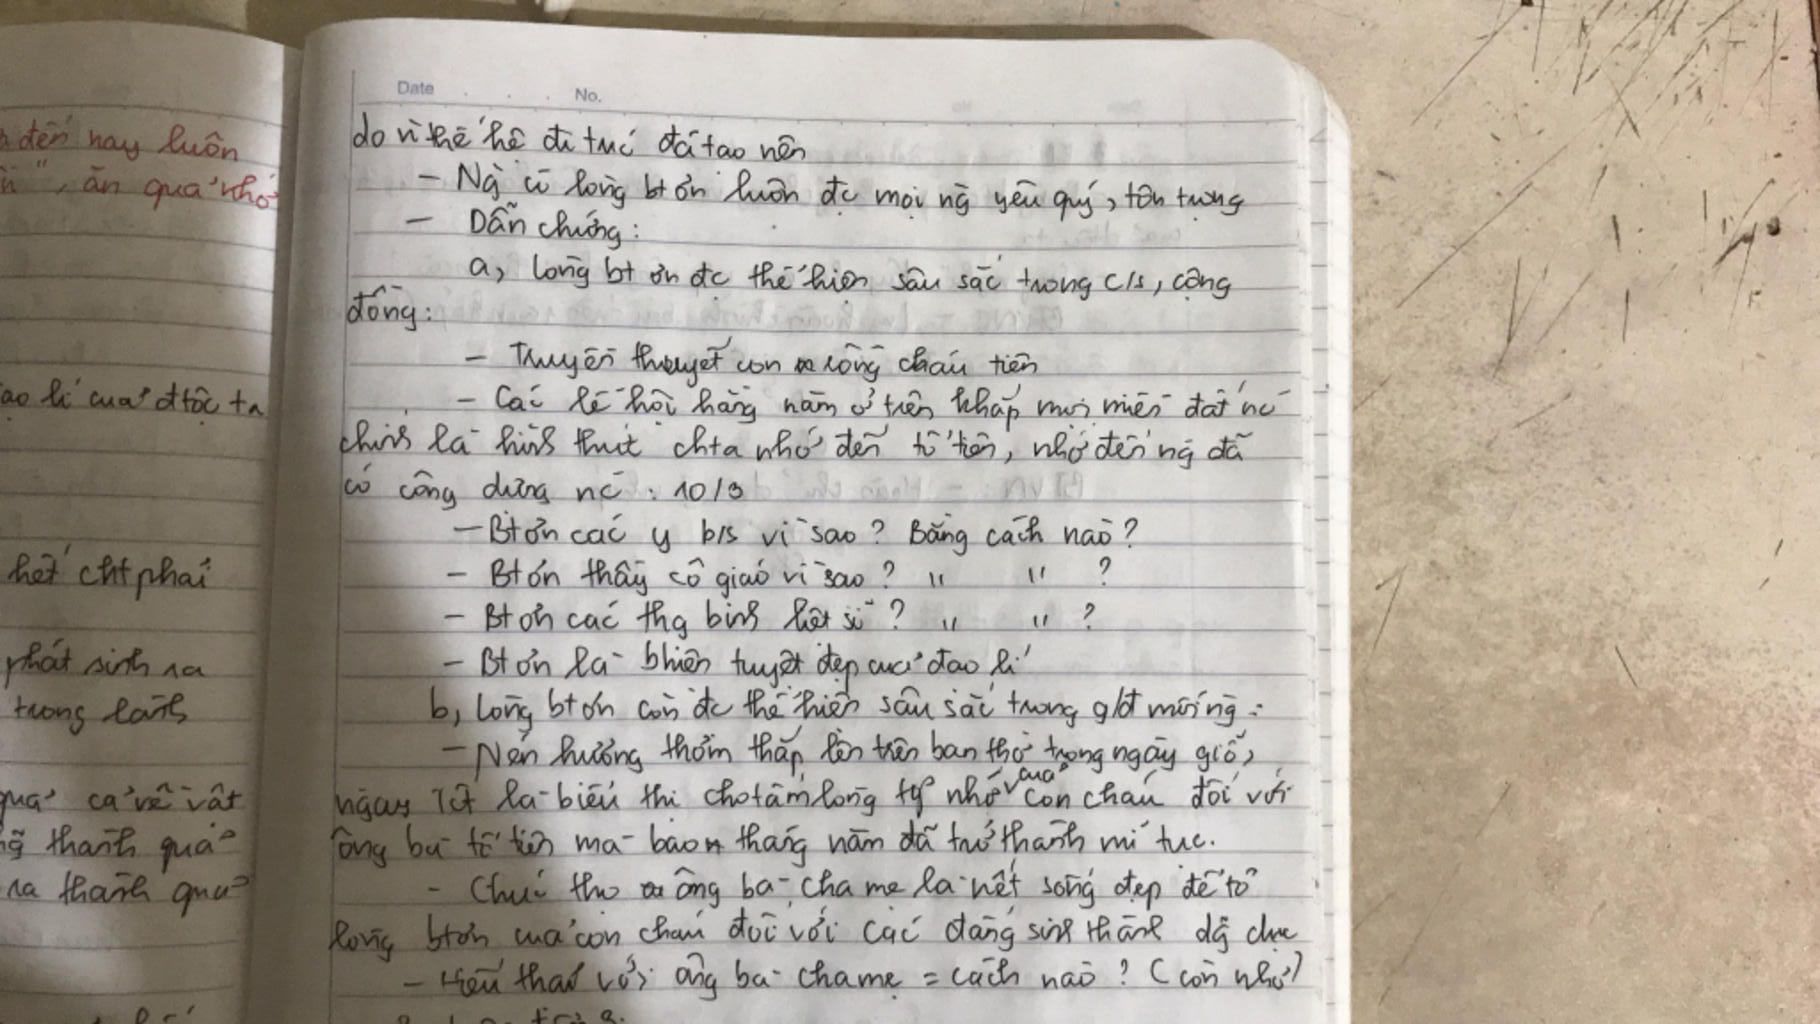 đến nay luôn
", ăn quả nhớ
ao lí của dtộc ta
hết cht phải
phát sinh ra
trong lành
quả cả về vật
thành quả
ra thành quả
Date No.
do vì thế hệ đi trước đã tạo nên
- Ng có lòng bt ơn luôn đc mọi ng yêu quý, tôn trọng
- Dẫn chứng:
a, Lòng bt ơn đc thể hiện sâu sắc trong c/s, cộng
đồng:
- Truyền thuyết con rồng cháu tiên
- Các lễ hội hằng năm ở trên khắp mọi miền đất nc
chính là hình thức chta nhớ đến tổ tiên, nhớ đến ng đã
có công dựng nc : 10/3
- Bt ơn các y b/s vì sao? Bằng cách nào?
- Bt ơn thầy cô giáo vì sao? " " ?
- Bt ơn các thg binh liệt sĩ? " " ?
- Bt ơn là bhiện tuyệt đẹp của đạo lí
b, Lòng bt ơn còn đc thể hiện sâu sắc trong g/đ mỗi ng:
- Nén hương thơm thắp lên trên ban thờ trong ngày giỗ,
ngày Tết là biểu thị cho tấm lòng nhớ của con cháu đối với
ông bà tổ tiên mà bao tháng năm đã trở thành mĩ tục.
- Chúc thọ ông bà, cha mẹ là nết sống đẹp để tỏ
lòng bt ơn của con cháu đối với các đấng sinh thành dg dục
- Hiếu thảo với ông bà cha mẹ = cách nào? (còn nhỏ)